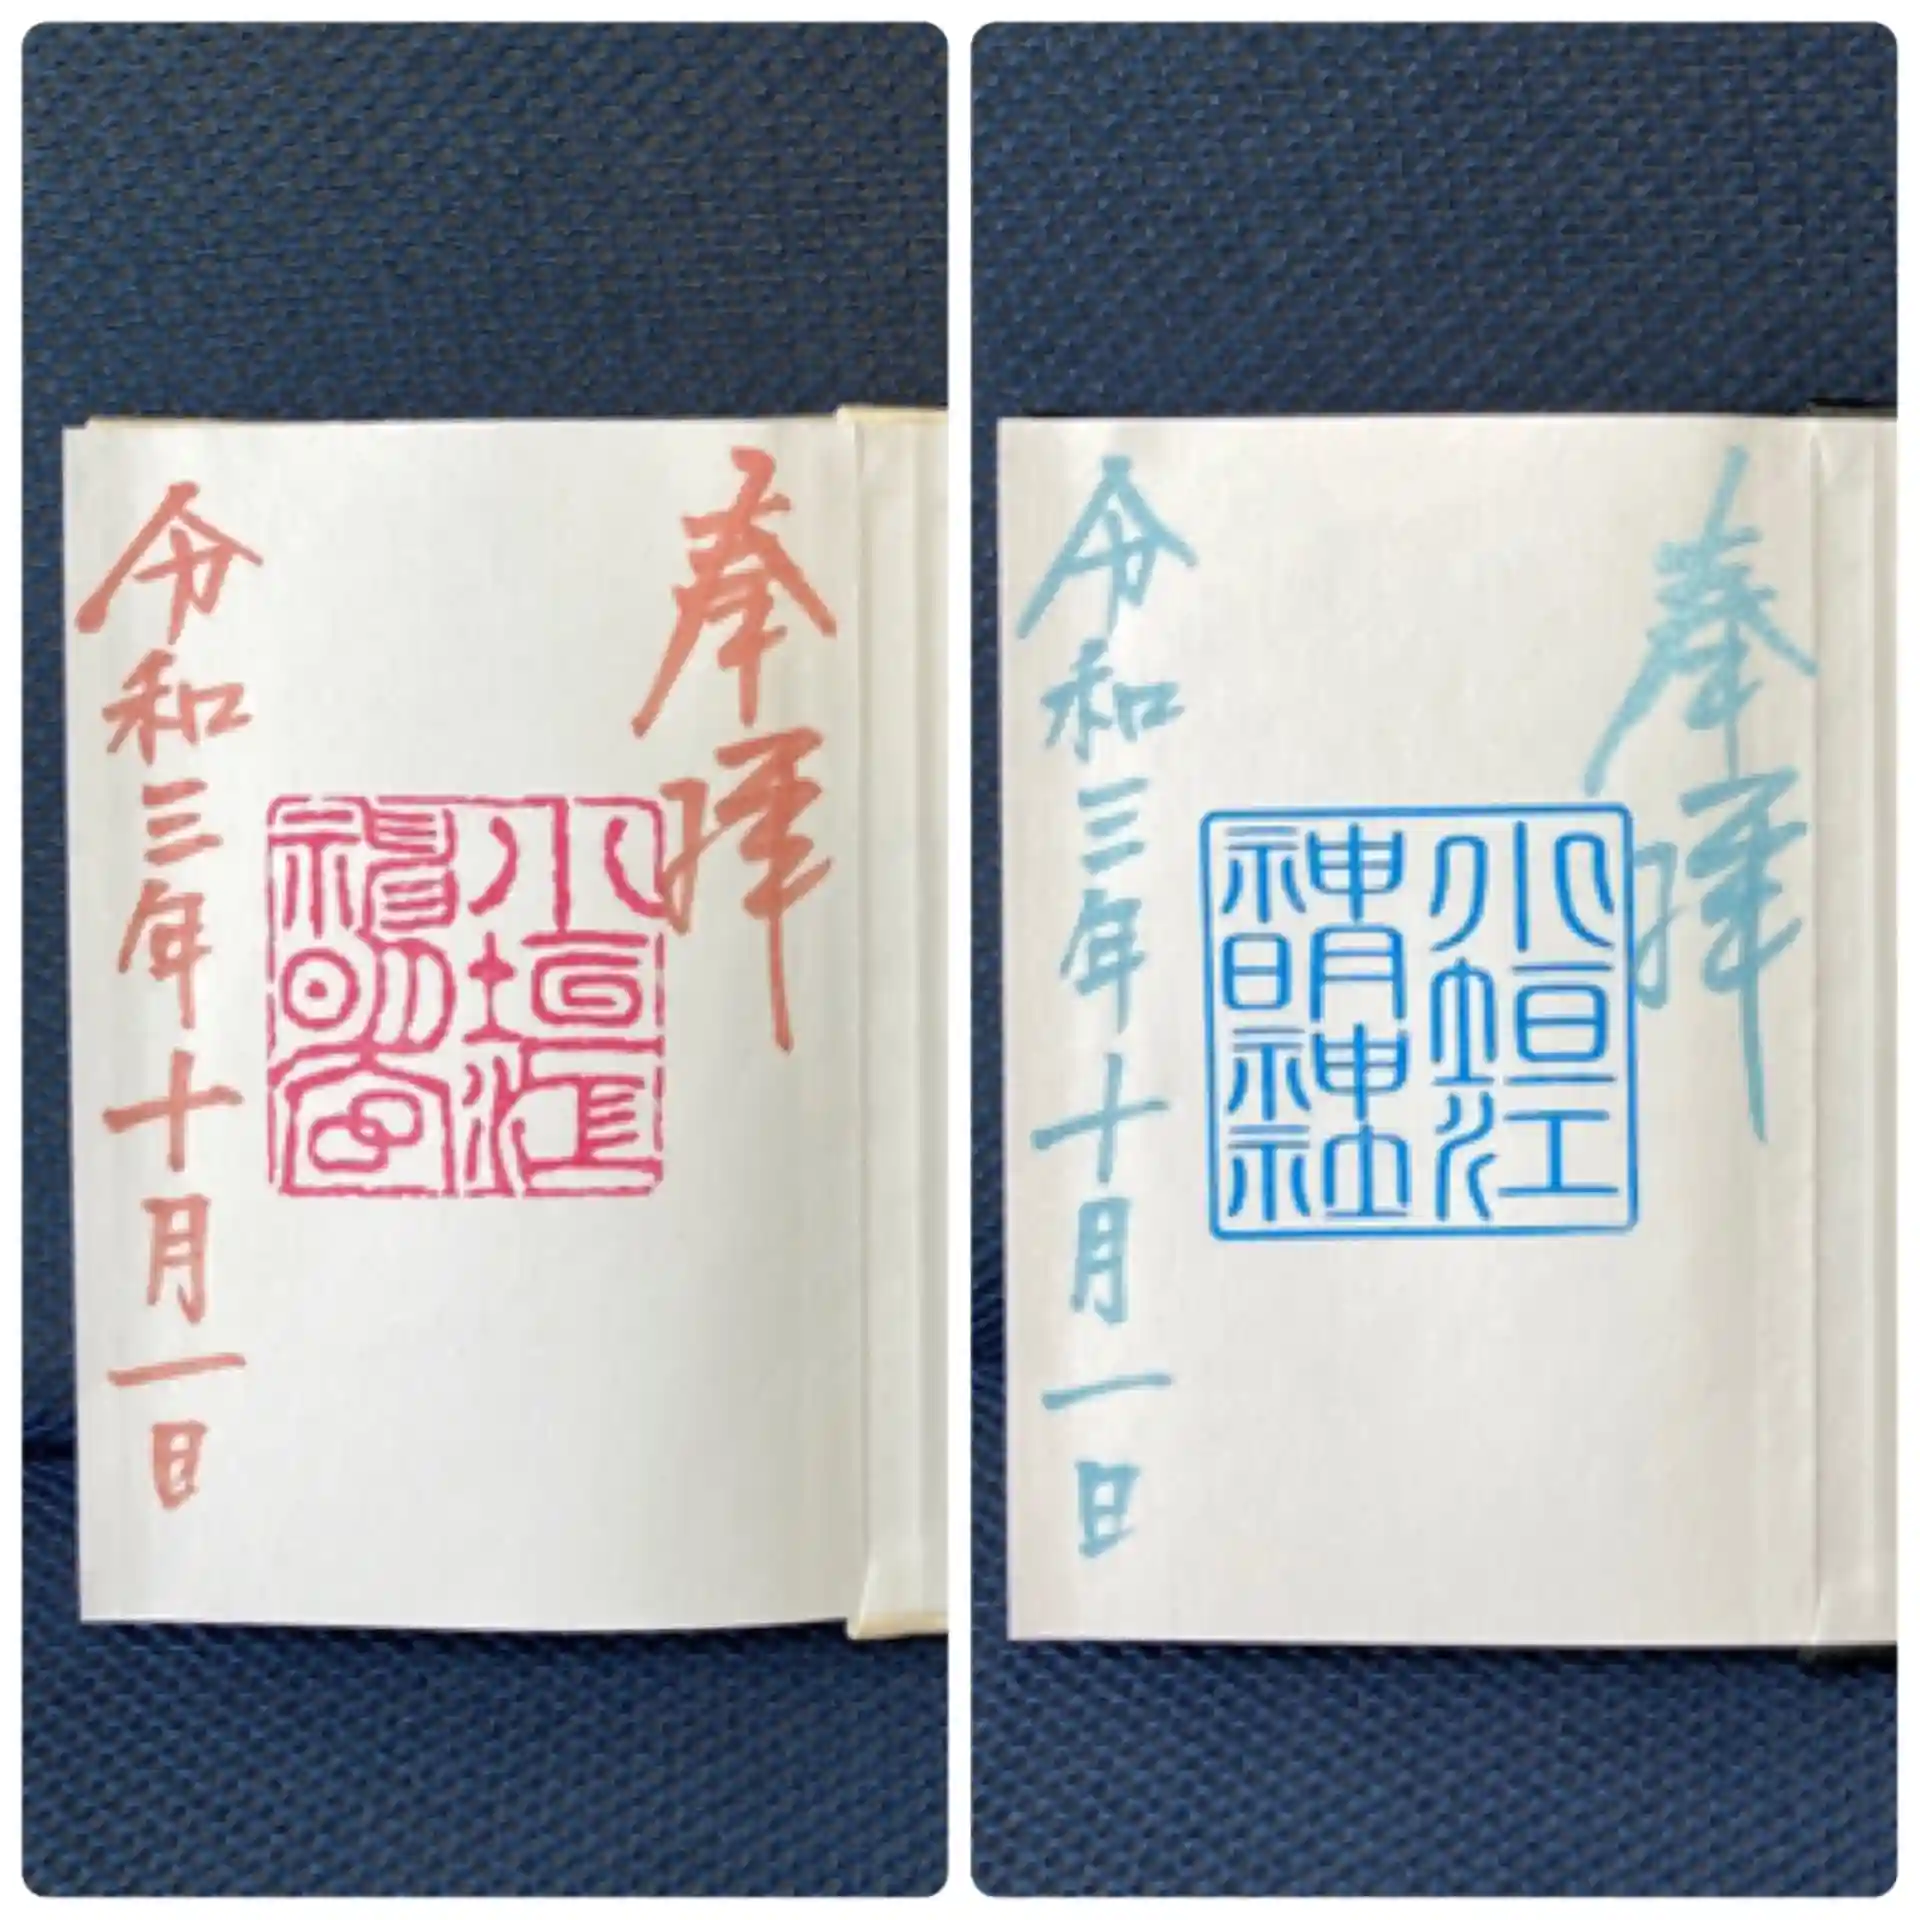 奉拝
小垣江
神明宮
令和三年十月一日
奉拝
小垣江
神明神社
令和三年十月一日